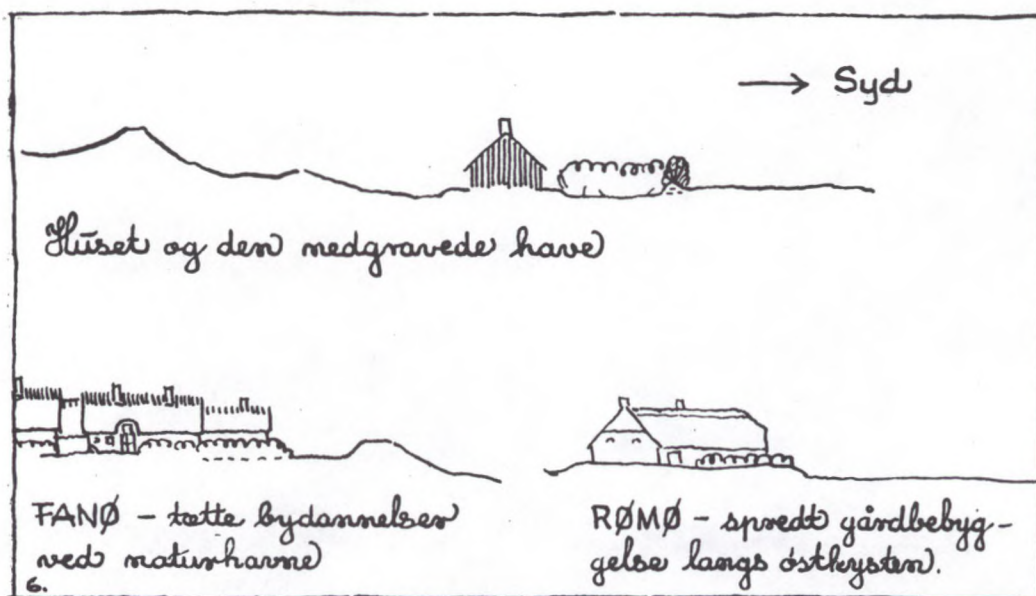 → Syd
Huset og den nedgravede have
FANØ – tætte bydannelser
ved naturhavne
RØMØ – spredt gårdbebyg-
gelse langs østkysten.
6.